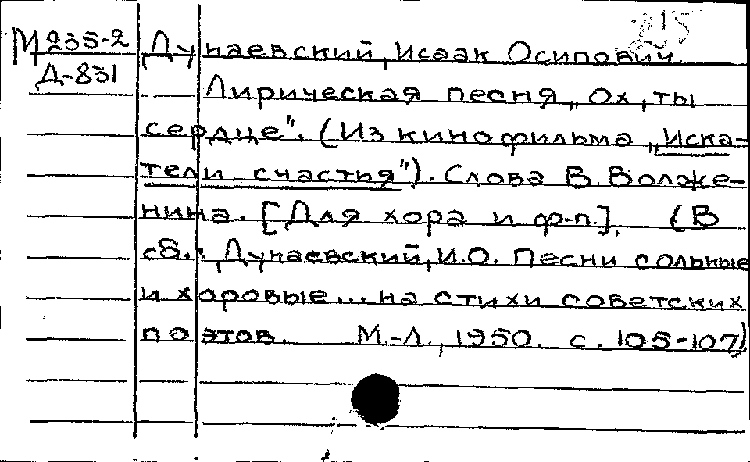 215
М 235-2 Дунаевский, Исаак Осипович
Д-831
Лирическая песня „Ох, ты
сердце". (Из кинофильма „Иска-
тели счастия"). Слова В. Волже-
нина. [Для хора и ф-п.]. (В
сб.: Дунаевский, И.О. Песни сольные
и хоровые... на стихи советских
поэтов. М.-Л., 1950. с. 105-107)